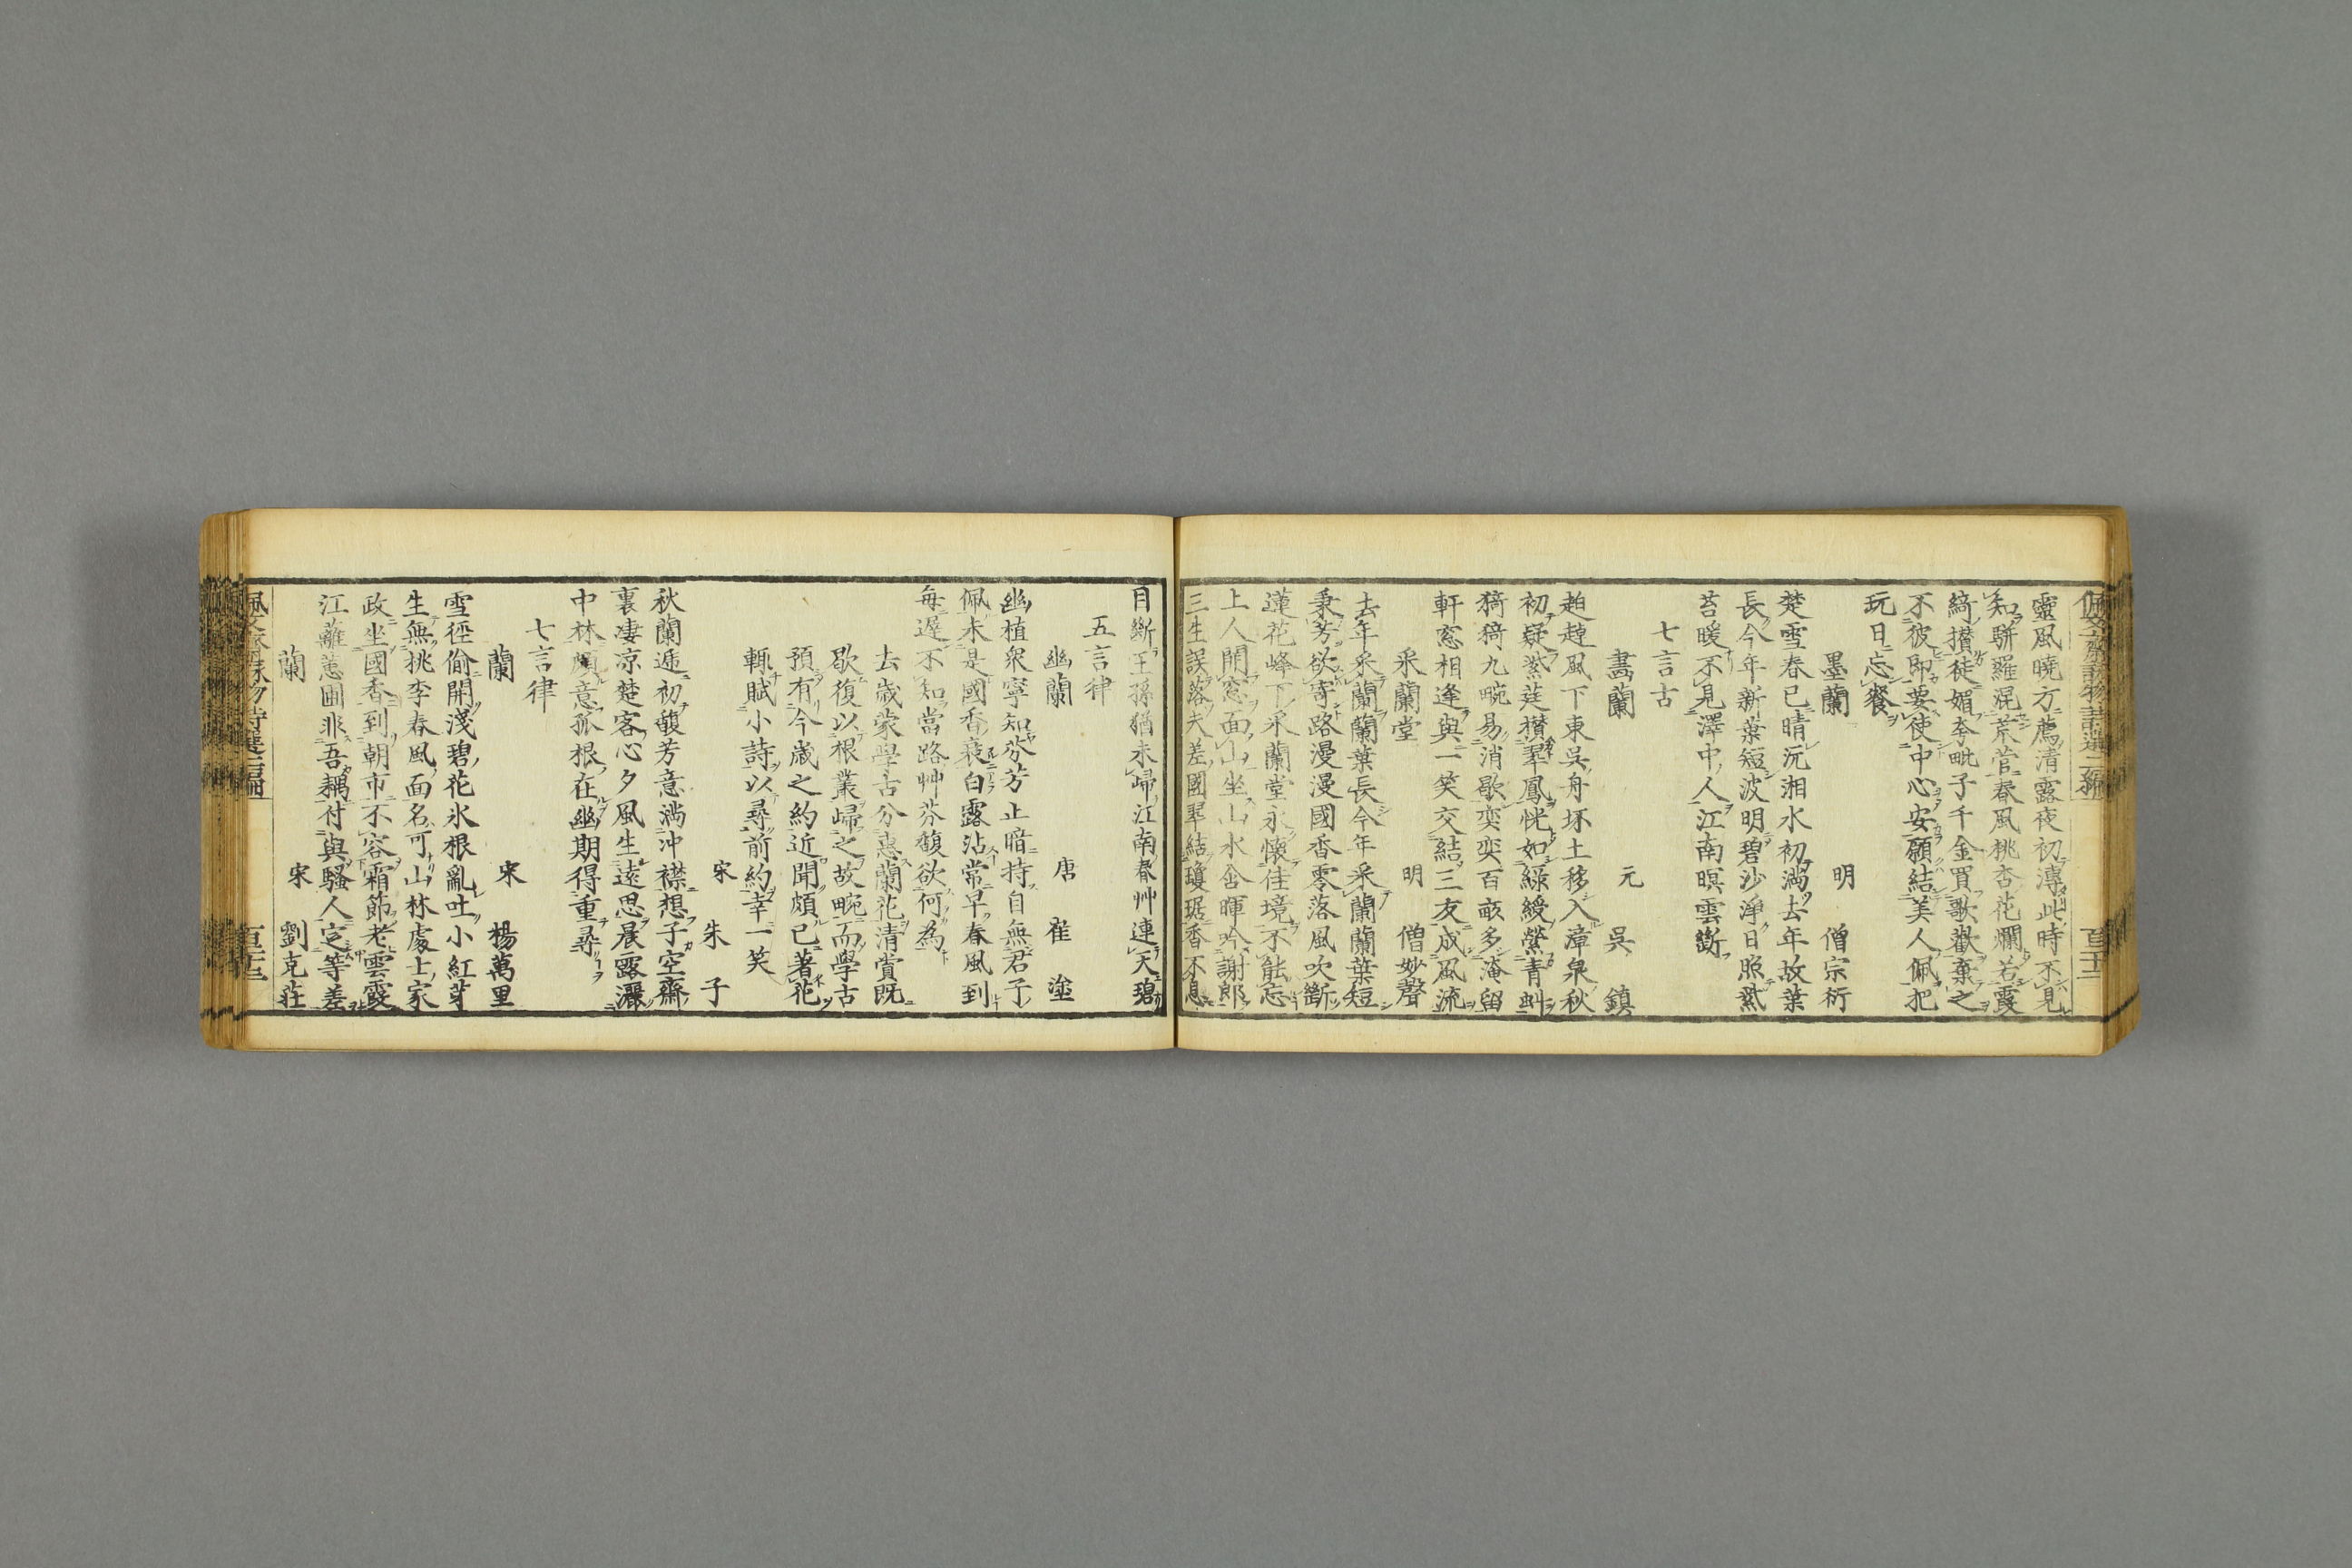 靈風曉方薦清露夜初漙此時不見
知駢羅混荒菅春風桃杏花爛若霞
綺攢徒媚夸毗子千金買歌歡棄之
不彼即要使中心安願結美人佩把
玩日忘餐
墨蘭 明 僧宗衍
楚雪春已晴沅湘水初滿去年故葉
長今年新葉短波明碧沙淨日照紫
苔暖不見澤中人江南暝雲斷
七言古
畫蘭 元 吳鎮
趠趠風下東吳舟坏土移入漳泉秋
初疑紫莛攢翠鳳恍如綠綬縈青虯
猗猗九畹易消歇奕奕百畝多淹留
軒窓相逢與一笑交結三友成風流
采蘭堂 明 僧妙聲
去年采蘭蘭葉長今年采蘭蘭葉短
秉芳欲寄路漫漫國香零落風吹斷
蓮花峰下采蘭堂永懷佳境不能忘
上人開窓面山坐山水含暉吟謝郎
三生誤落夫差國翠結瓊琚香不息
目斷王孫猶未歸江南春艸連天碧
五言律
幽蘭 唐 崔塗
幽植衆寧知芬芳止暗持自無君子
佩未是國香衰白露沾常早春風到
每遲不知當路艸芬馥欲何為
去歲蒙學古分惠蘭花清賞既
歇復以根叢歸之故畹而學古
預有今歲之約近聞頗已著花
輒賦小詩以尋前約幸一笑
宋 朱子
秋蘭遞初馥芳意滿沖襟想子空齋
裏凄凉楚客心夕風生遠思晨露灑
中林頗意孤根在幽期得重尋
七言律
蘭 宋 楊萬里
雪徑偷開淺碧花氷根亂吐小紅芽
生無桃李春風面名可山林處士家
政坐國香到朝市不容霜節老雲霞
江蘺蕙圃非吾耦付與騷人定等差
蘭 宋 劉克莊